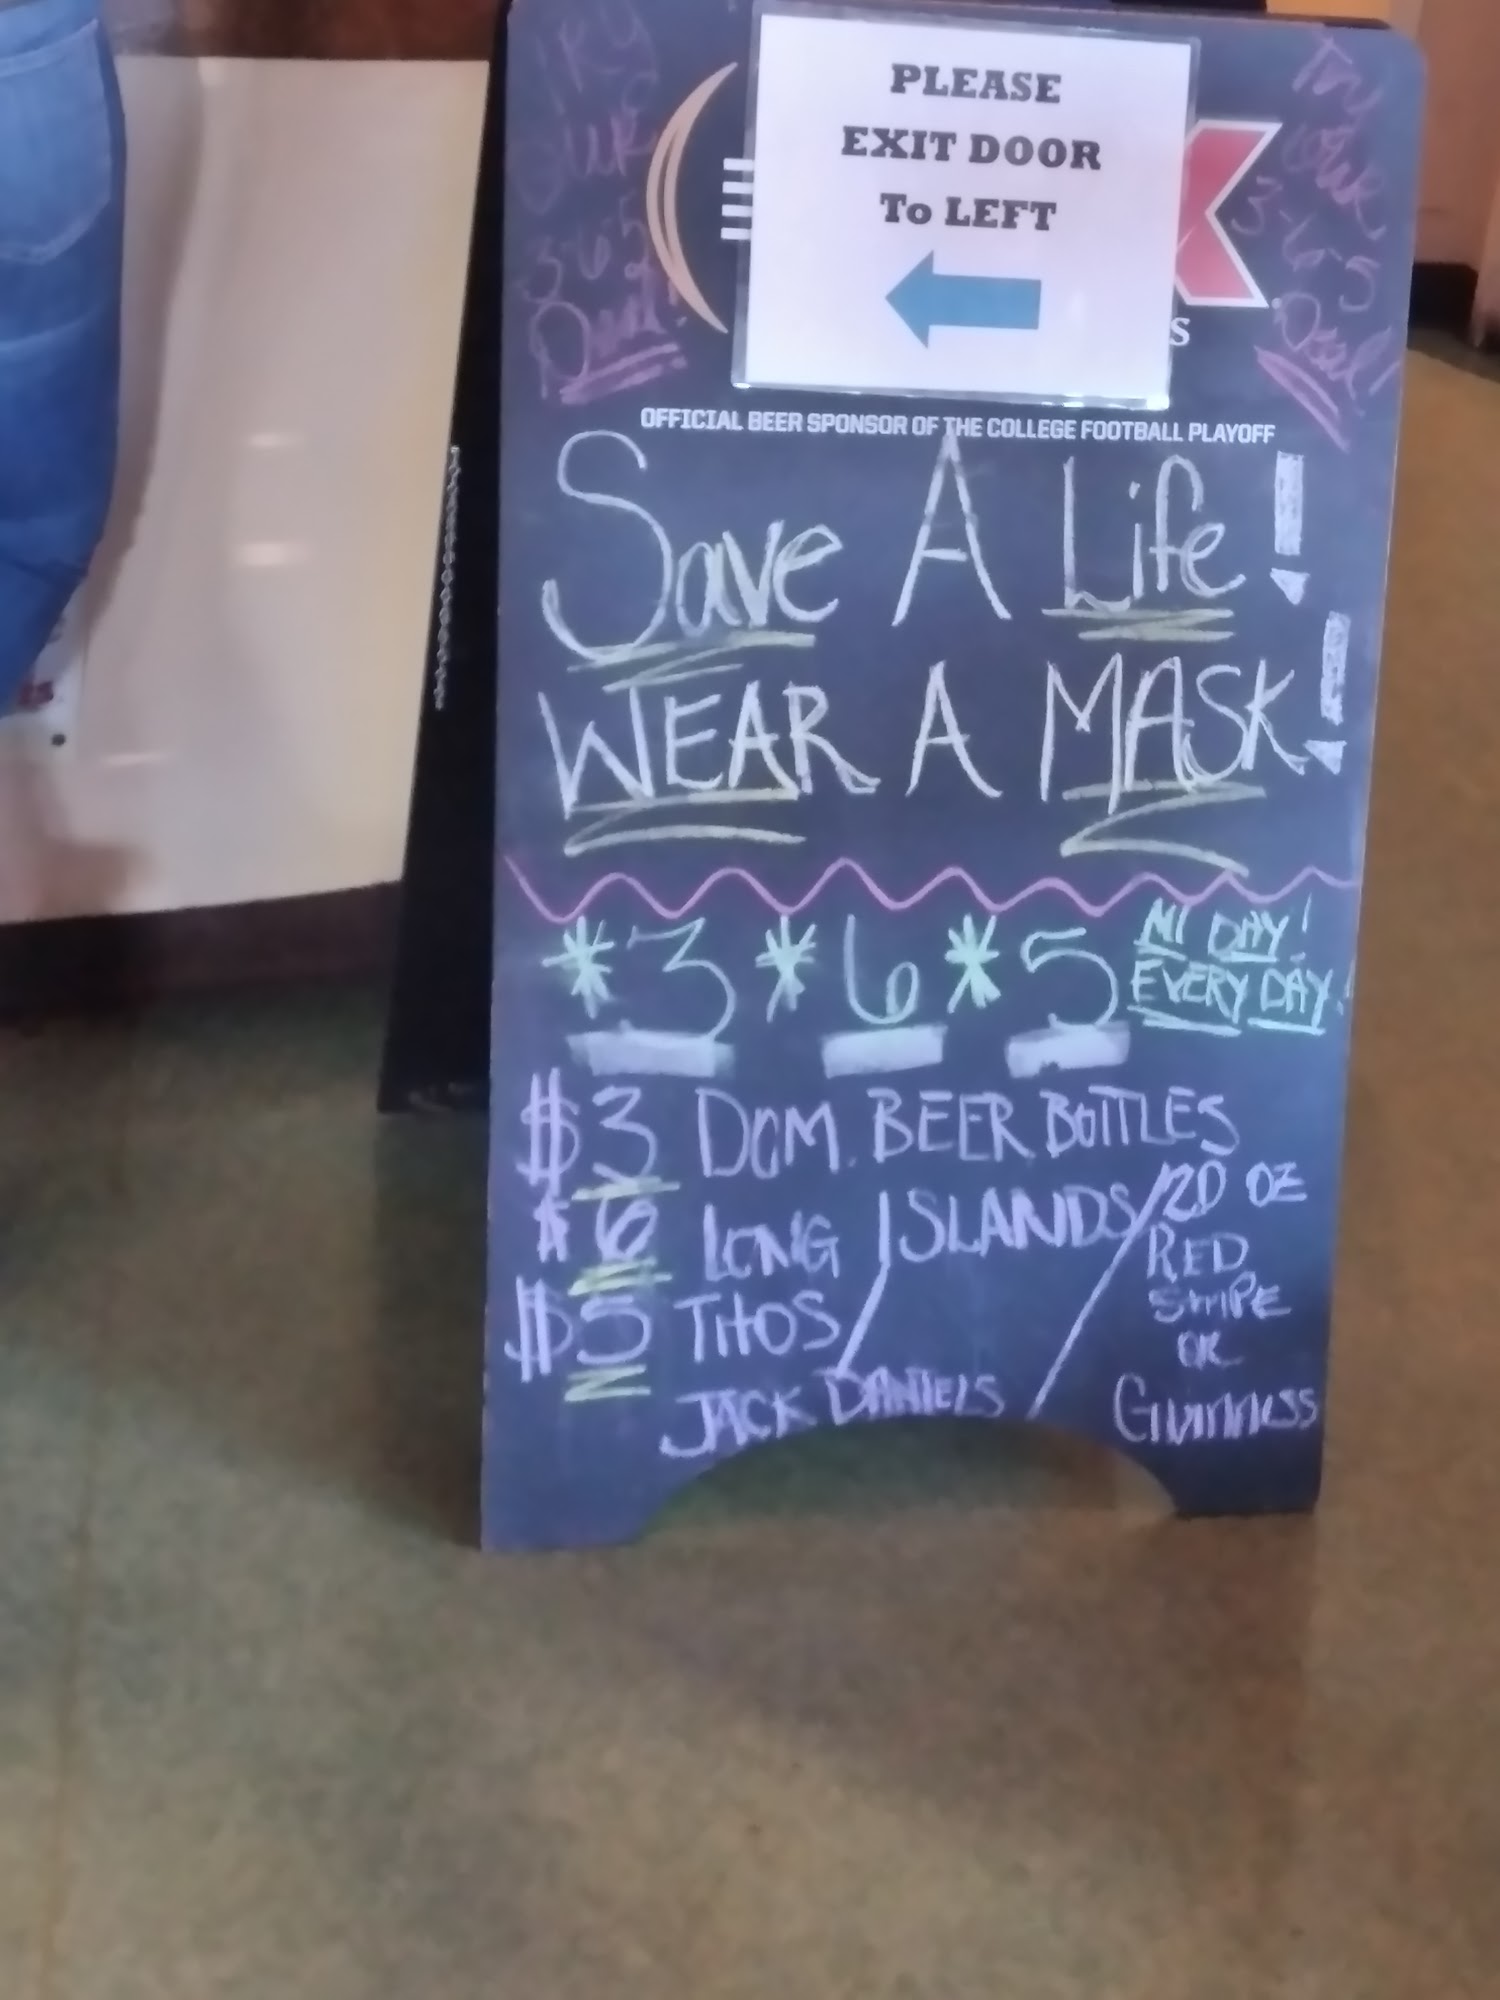 PLEASE
EXIT DOOR
To LEFT
Try
our
3-6-5
Deal!
Try
our
3-6-5
Deal!
S
OFFICIAL BEER SPONSOR OF THE COLLEGE FOOTBALL PLAYOFF
Save A Life!
WEAR A MASK!
*3*6*5 All DAY!
EVERY DAY!
$3 DOM. BEER BOTTLES
$6 LONG ISLANDS/20 OZ
RED
STRIPE
OR
GUINNESS
$5 TITOS/
JACK DANIELS